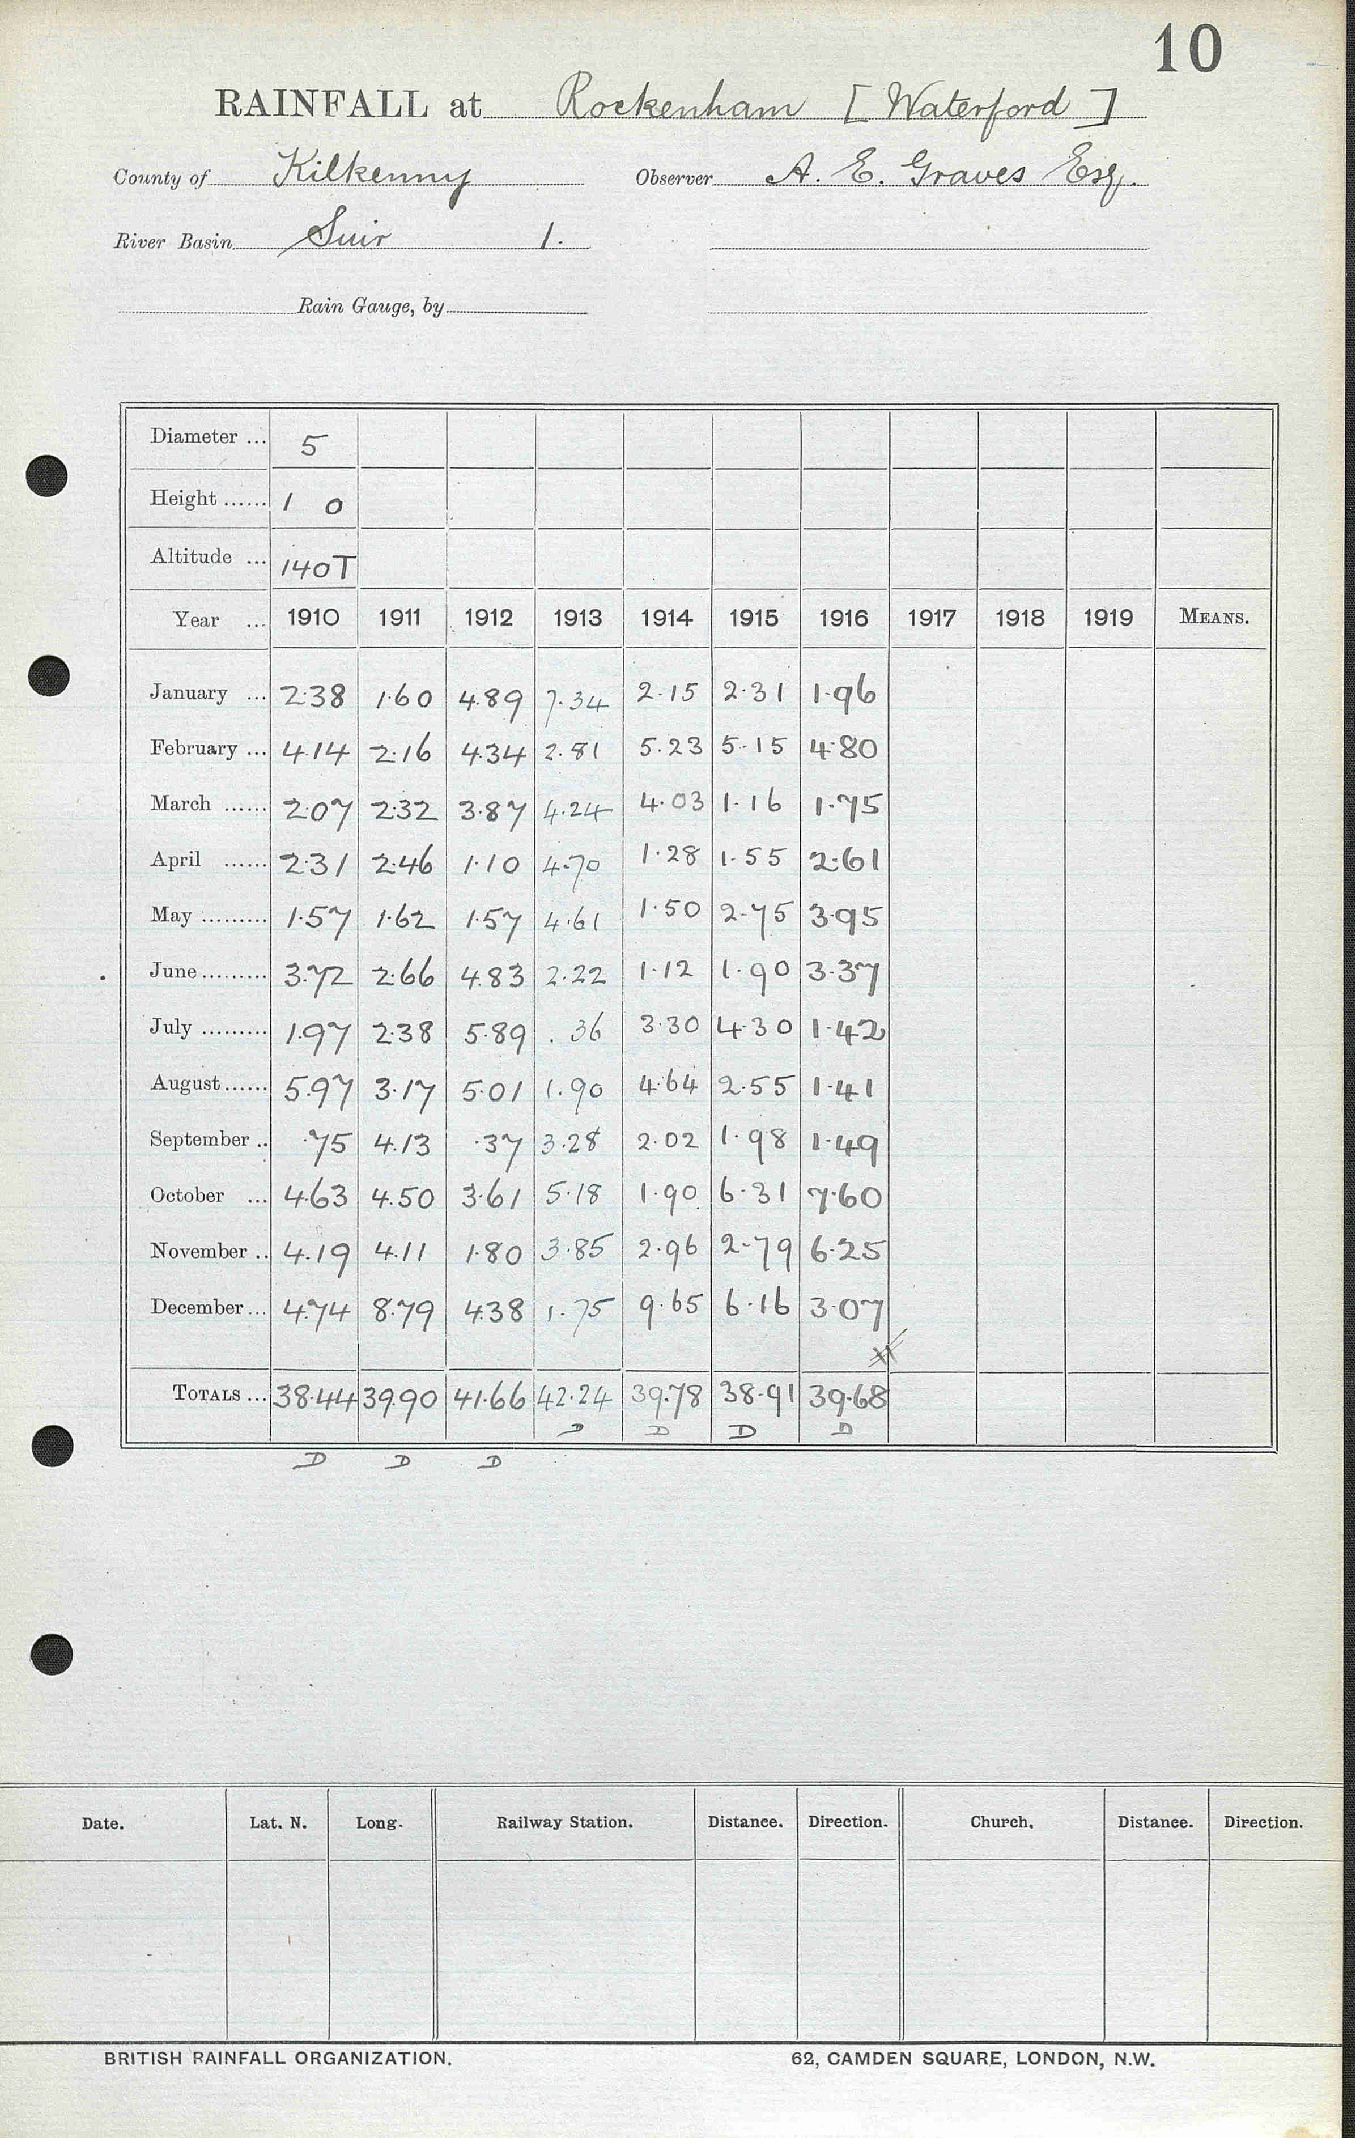 10
RAINFALL at Rockenham [Waterford]
County of Kilkenny Observer A. E. Graves Esq.
River Basin Suir 1.
Rain Gauge, by
Diameter ... 5
Height ...... 1 0
Altitude ... 140T
Year ... 1910 1911 1912 1913 1914 1915 1916 1917 1918 1919 MEANS.
January ... 2.38 1.60 4.89 7.34 2.15 2.31 1.96
February ... 4.14 2.16 4.34 2.81 5.23 5.15 4.80
March ...... 2.07 2.32 3.87 4.24 4.03 1.16 1.75
April ...... 2.31 2.46 1.10 4.70 1.28 1.55 2.61
May ......... 1.57 1.62 1.57 4.61 1.50 2.75 3.95
June ......... 3.72 2.66 4.83 2.22 1.12 1.90 3.37
July ......... 1.97 2.38 5.89 .36 3.30 4.30 1.42
August ...... 5.97 3.17 5.01 1.90 4.64 2.55 1.41
September .. .75 4.13 .37 3.28 2.02 1.98 1.49
October ... 4.63 4.50 3.61 5.18 1.90 6.31 7.60
November .. 4.19 4.11 1.80 3.85 2.96 2.79 6.25
December ... 4.74 8.79 4.38 1.75 9.65 6.16 3.07
TOTALS ... 38.44 39.90 41.66 42.24 39.78 38.91 39.68
D D D D
D D D
Date. Lat. N. Long. Railway Station. Distance. Direction. Church. Distance. Direction.
BRITISH RAINFALL ORGANIZATION. 62, CAMDEN SQUARE, LONDON, N.W.